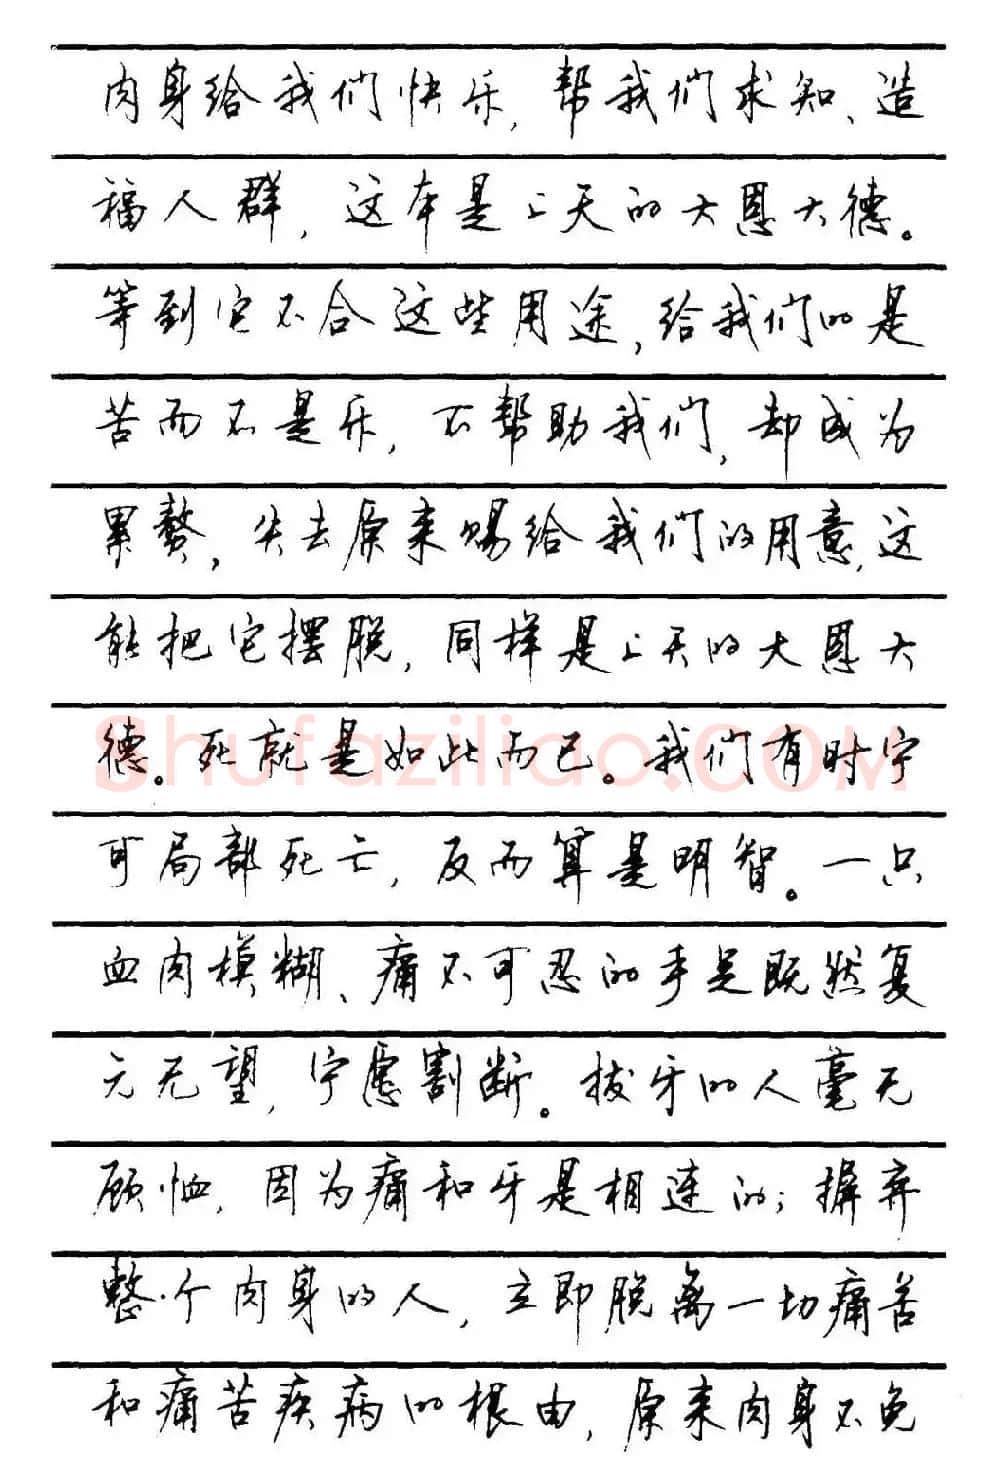 肉身给我们快乐,帮我们求知、造
福人群,这本是上天的大恩大德。
等到它不合这些用途,给我们的是
苦而不是乐,不帮助我们,却成为
累赘,失去原来赐给我们的用意,这
能把它摆脱,同样是上天的大恩大
德。死就是如此而已。我们有时宁
可局部死亡,反而算是明智。一只
血肉模糊、痛不可忍的手足既然复
元无望,宁愿割断。拔牙的人毫无
顾恤,因为痛和牙是相连的;摒弃
整个肉身的人,立即脱离一切痛苦
和痛苦疾病的根由,原来肉身不免
Shufaziliao.COM